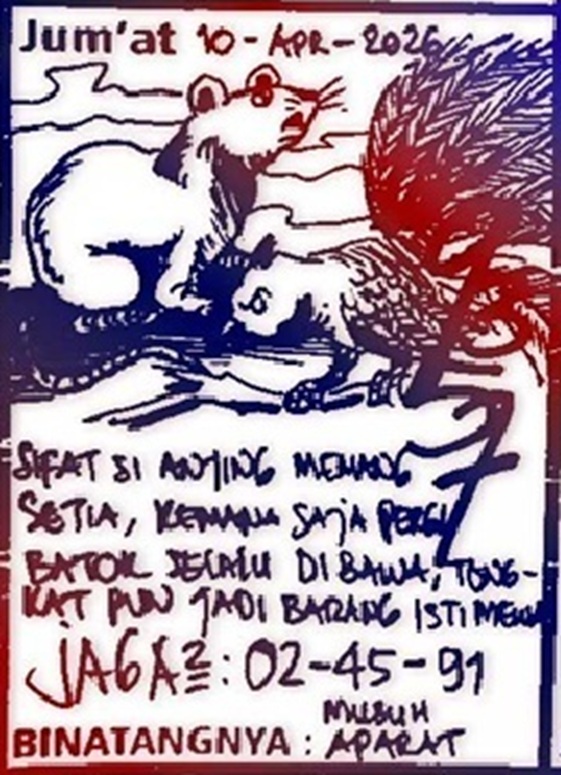 Jum'at 10 - APR - 2026
SIFAT SI ANJING MEMANG
SETIA, KEMANA SAJA PERGI
BATOK SELALU DI BAWA, TONG-
KAT PUN JADI BARANG ISTIMEWA
7
JAGA2 : 02-45-91
MUSUH
BINATANGNYA : APARAT